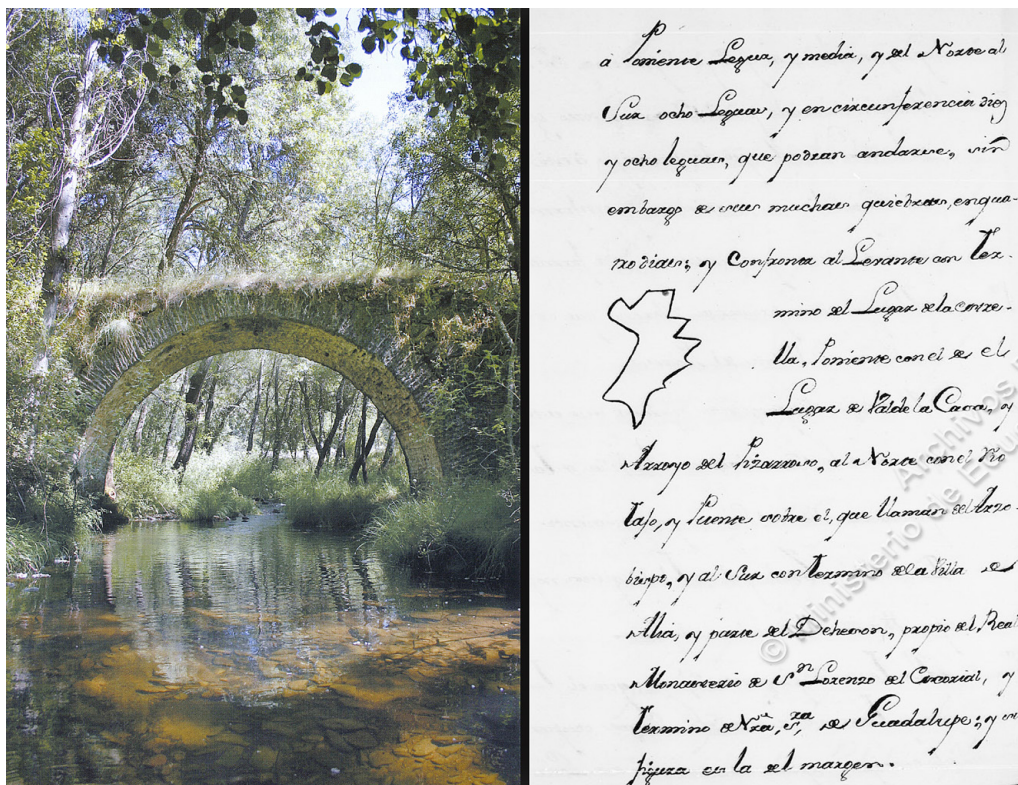 á Poniente Legua, y media, y del Norte al
Sur ocho Leguas, y en circunferencia diez
y ocho leguas, que podran andarse, sin
embargo de sus muchas quiebras, en qua-
tro dias; y Confronta al Levante con Ter-
mino del Lugar de la estre-
lla, Poniente con el de el
Lugar de Valdelacasa, y
Arroyo del Pizarroso, al Norte con el Rio
Tajo, y Puente sobre el, que llaman del Arzo-
bispo, y al Sur con termino de la Villa de
Alia, y parte del Deheson, propio del Real
Monasterio de Sn Lorenzo del Escorial, y
termino de Nra, Sra, de Guadalupe; y su
figura es la del margen.
© Ministerio de
Archivos